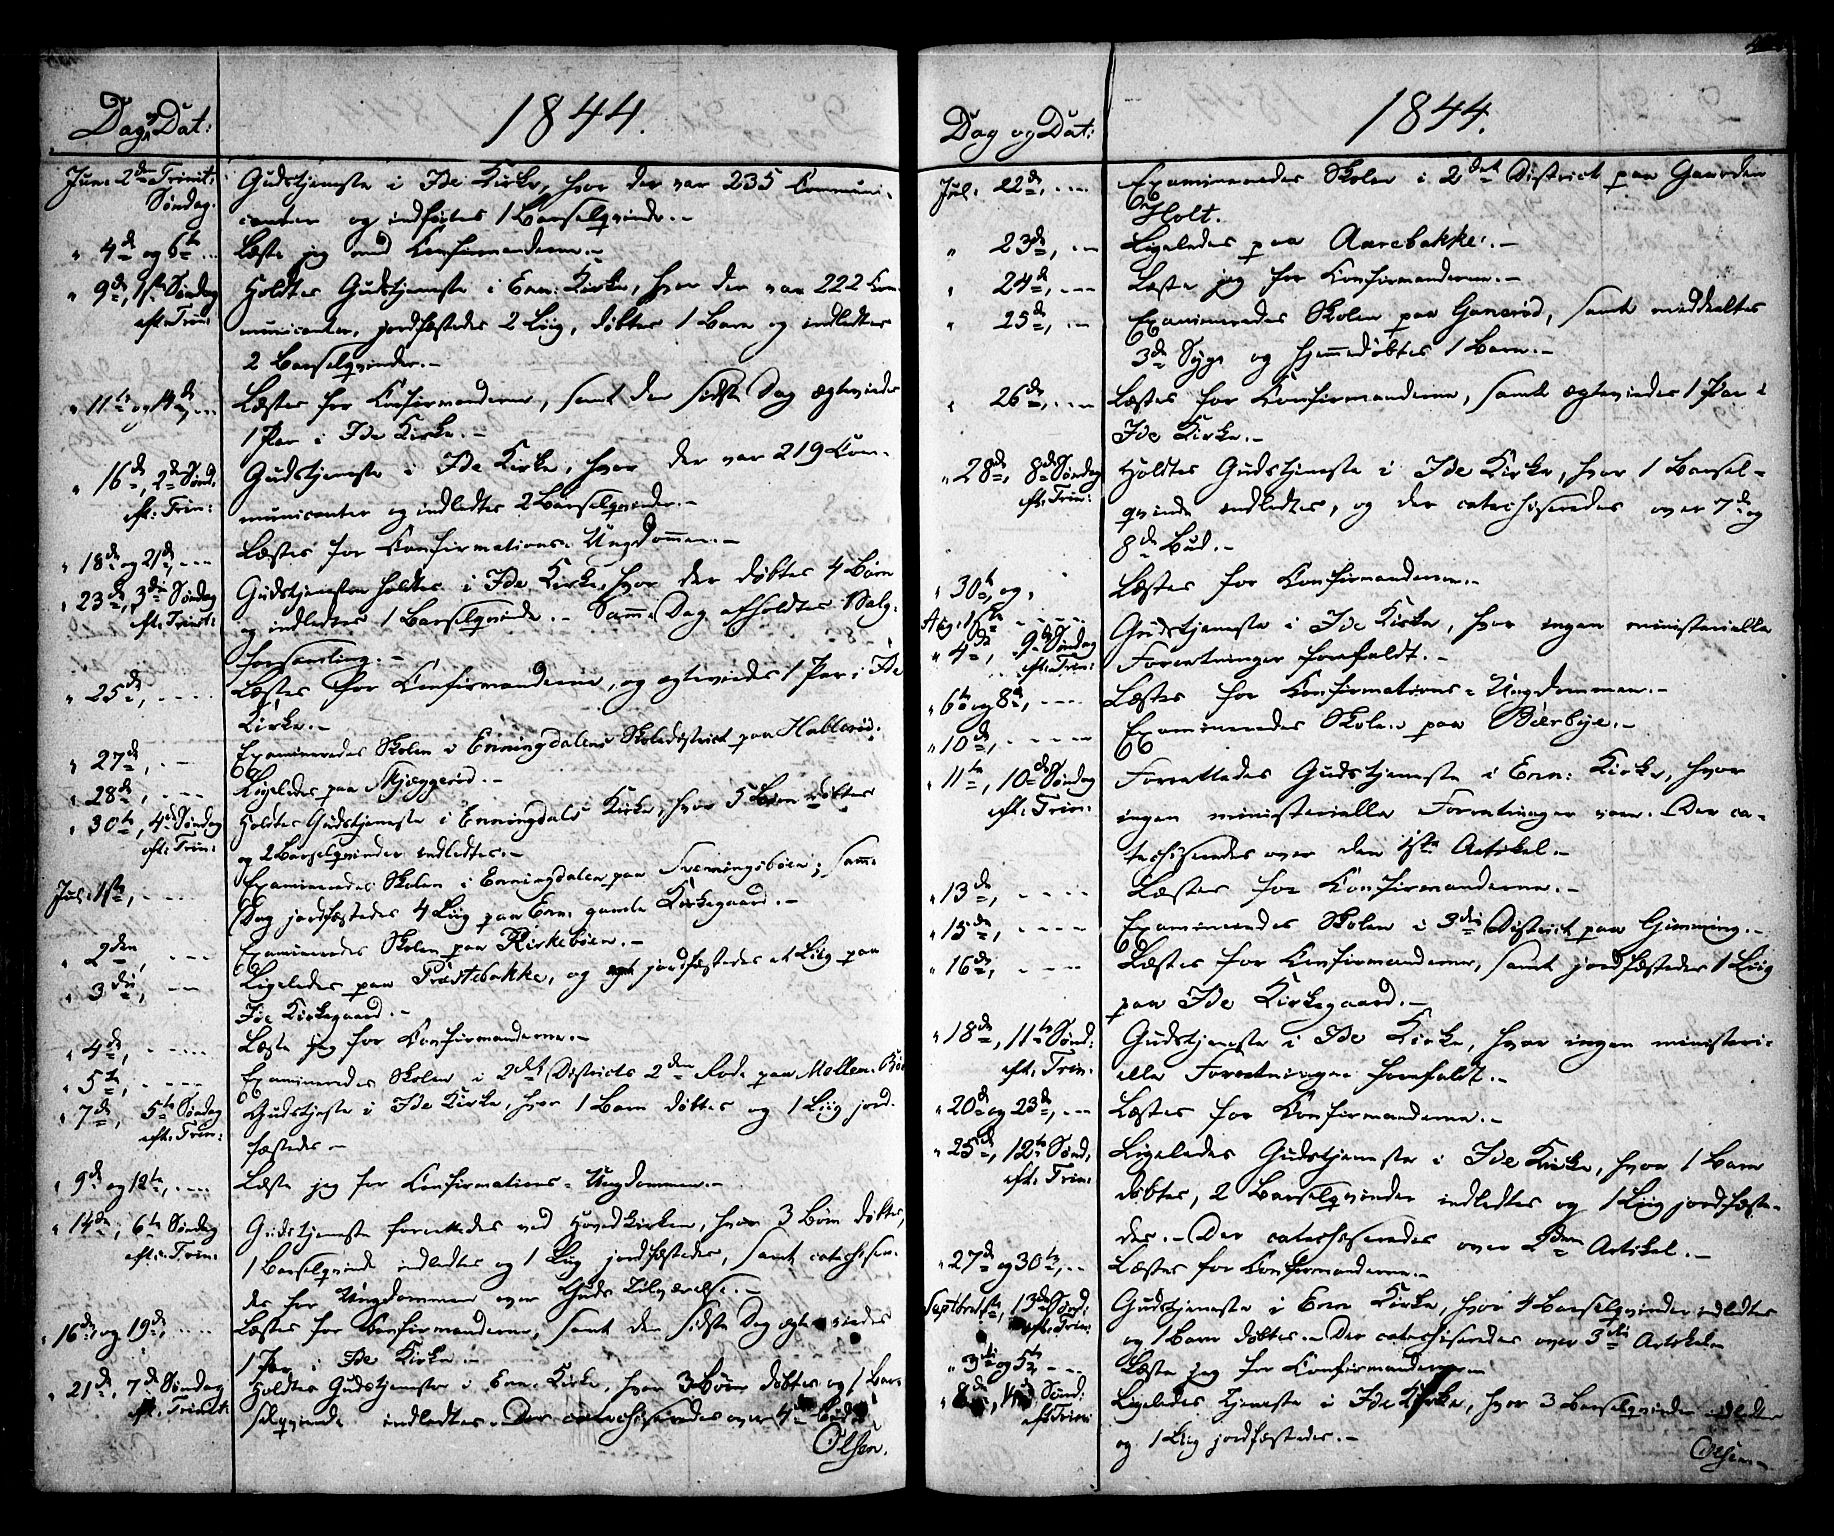 Dag og Dat:
1844.
Jun: 2de Trinit:
Søndag.
Gudstjeneste i Ide Kirke, hvor der var 235 Communi-
canter og indførtes 1 Barselqvinde.-
" 4de og 6te ...
Læste jeg med Confirmanderne.-
" 9de, 1ste Søndag
eft. Trin:
Holdtes Gudstjeneste i Enn: Kirke, hvor der var 222 Com-
municanter, jordfæstedes 2 Liig, døbtes 1 Barn og indledtes
2 Barselqvinder.-
" 11te og 14de, ...
Læstes for Confirmanderne, samt den sidste Dag ægteviedes
1 Par i Ide Kirke.-
" 16de, 2den Sønd.
eft: Trin:
Gudstjeneste i Ide Kirke, hvor der var 219 Com-
municanter og indledtes 2 Barselqvinder.-
" 18de og 21de, ...
Læstes for Confirmations-Ungdommen.-
" 23de, 3die Søndag
eft. Trinit:
Gudstjenesten holdtes i Ide Kirke, hvor der døbtes 4 Børn
og indledtes 1 Barselqvinde.- Samme Dag afholdtes Valg-
forsamling.-
" 25de, ----
Læstes for Confirmanderne, og ægteviedes 1 Par i Ide
Kirke.-
" 27de, --
Examineredes Skolen i Enningdalens Skoledistrict paa Hallerød.
" 28de, ---
Ligeledes paa Skjeggerød.-
" 30te, 4de Søndag
eft: Trin:
Holdtes Gudstjeneste i Enningdals Kirke, hvor 5 Børn døbtes
og 2 Barselqvinder indledtes.-
Jul: 1ste, ----
Examineredes Skolen i Enningdalen paa Sverningsbøen; samme
Dag jordfæstedes 4 Liig paa Enn: gamle Kirkegaard.-
" 2den, ---
Examineredes Skolen paa Kirkebøen.-
" 3die, --
Ligeledes paa Præstebakke, og jordfæstedes et Liig paa
Ide Kirkegaard.-
" 4de, -----
Læste jeg for Confirmanderne.-
" 5te, ----
Examineredes Skolen i 2det Districts 2den Rode paa
" 7de, 5te Søndag
eft: Trin:
Gudstjeste i Ide Kirke, hvor 1 Barn døbtes og 1 Liig jord-
fæstedes -
" 9de og 12te, ....
Læste jeg for Confirmations-Ungdommen.-
" 14de, 6te Søndag
eft: Trin:
Gudstjeneste forrettedes ved Hovedkirken, hvor 3 Børn døbtes,
1 Barselqvinde indledtes og 1 Liig jordfæstedes, samt catechisere-
des for Ungdommen over Guds Tilværelse.-
" 16de og 19de, ....
Læstes for Confirmanderne, samt den sidste Dag ægteviedes
1 Par i Ide Kirke.-
" 21de, 7de Søndag
eft. Trinit:
Holdtes Gudstjeneste i Enn. Kirke, hvor 3 Børn døbtes og 1 Bar-
selqvinde indledtes. Der catechiseredes over 4de Bud.
Olsen.
Dag og Dat:
1844.
Jul: 22de, ...
Examineredes Skolen i 2det District paa Gaarden
Holt.
" 23de, --
Ligeledes paa Aarebakke.-
" 24de, ---
Læste jeg for Confirmanderne.-
" 25de, --
Examineredes Skolen paa Ganerød, samt meddeeltes
3de Syge og hjemmedøbtes 1 Barn.-
" 26de, ---
Læstes for Confirmanderne, samt ægteviedes 1 Par i
Ide Kirke.-
" 28de, 8de Søndag
eft: Trin:
Holdtes Gudstjeneste i Ide Kirke, hvor 1 Barsel-
qvinde indledtes, og der catechiseredes over 7de og
8de Bud.-
" 30te, og
Aug. 1ste - ---
Læstes for Confirmanderne.-
" 4de, 9de Søndag
eft: Trin:
Gudstjeneste i Ide Kirke, hvor ingen ministerielle
Forretninger forefaldt.-
" 6te og 8de, ----
Læstes for Confirmations-Ungdommen.-
" 10de, -----
Examineredes Skolen paa Bierbye.-
" 11te, 10de Søndag
eft: Trin:
Forrettedes Gudstjeneste i Enn: Kirke, hvor
ingen ministerielle Forretninger vare. Der ca-
techiseredes over den 1ste Artikel.-
" 13de, ----
Læstes for Confirmanderne.-
" 15de, ----
Examineredes Skolen i 3die District paa Gimming.-
" 16de, ---
Læstes for Confirmanderne, samt jordfæstedes 1 Liig
paa Ide Kirkegaard.-
" 18de, 11te Sønd:
eft: Trin:
Gudstjeneste i Ide Kirke, hvor ingen ministeri-
elle Forretninger forefaldt.-
" 20de og 23de, ...
Læstes for Confirmanderne.-
" 25de, 12te Sønd,
eft: Trin:
Ligeledes Gudstjeneste i Ide Kirke, hvor 1 Barn
døbtes, 2 Barselqvinder indledtes og 1 Liig jordfæste-
des.- Der catechiseredes over 2den Artikel.-
" 27de og 30te, ..
Læstes for Confirmanderne.-
Septbr. 1ste, 13de Sønd.
eft. Trin:
Gudstjeneste i Enn Kirke, hvor 4 Barselqvinder indledtes
og 1 Barn døbtes.- Der catechiseredes over 3die Artikel.-
" 3die og 5te ---
Læste jeg for Confirmanderne.-
" 8de, 14de Sønd:
eft Trin:
Ligeledes Tjeneste i Ide Kirke, hvor 3 Barselqvinder indledtes
og 1 Liig jordfæstedes.-
Olsen.-